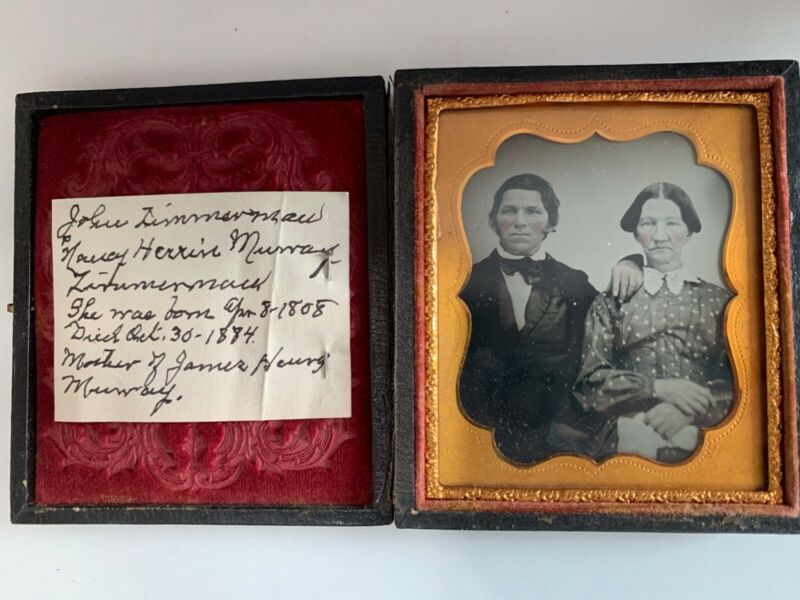 John Zimmerman
Nancy Herrin Murray
Zimmerman
She was born Apr 8-1808
Died Oct. 30-1884.
Mother of James Henry
Murray.